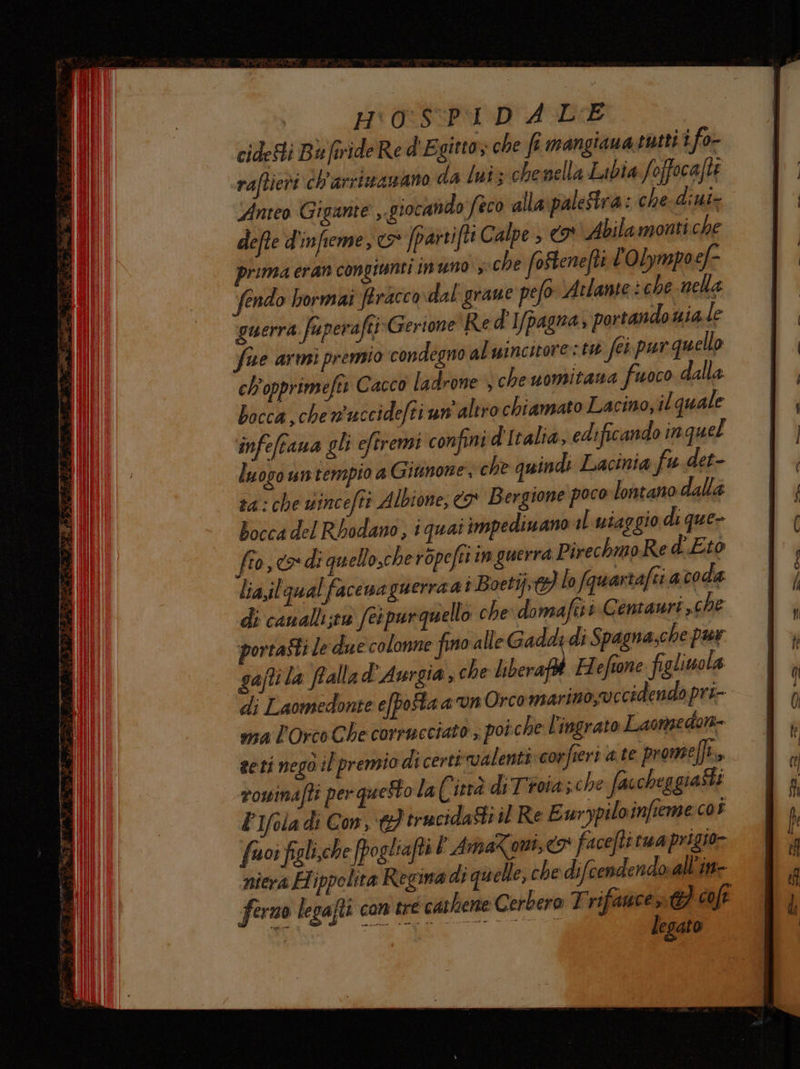 HOSPIDALE
cidesti Busiride Re d'Egitto; che si mangiaua tutti i fo-
rastieri ch'arriuauano da lui; che nella Libia soffocaste
Anteo Gigante, giocando seco alla palestra: che diui-
deste d'insieme, & spartisti Calpe, & Abila monti che
prima eran congiunti in uno; che sostenesti l'Olympo es-
sendo hormai stracco dal graue peso Atlante: che nella
guerra superasti Gerione Re d'Ispagna, portando uia le
sue armi premio condegno al uincitore: tu sei pur quello
ch'opprimesti Cacco ladrone, che uomitaua fuoco dalla
bocca, che n'uccidesti un'altro chiamato Lacino, il quale
infestaua gli estremi confini d'Italia, edificando in quel
luogo un tempio a Giunone, che quindi Lacinia fu det-
ta: che uincesti Albione, & Bergione poco lontano dalla
bocca del Rhodano, i quai impediuano il uiaggio di que-
sto, & di quello, che rōpesti in guerra Pirechmo Re d'Eto
lia, il qual faceua guerra a i Boetij, & lo squartasti a coda
di caualli; tu sei pur quello che domasti i Centauri, che
portasti le due colonne fino alle Gaddi di Spagna, che pur
gasti la stalla d'Aurgia, che liberasti Hesione figliuola
di Laomedonte esposta a vn Orco marino, vccidendo pri-
ma l'Orco Che corrucciato, poi che l'ingrato Laomedon-
te ti negò il premio di certi valenti corsieri a te promessi,
rouinasti per questo la Città di Troia; che saccheggiasti
l'Isola di Con, & trucidasti il Re Eurypilo insieme co i
suoi figli, che spogliasti l'Amazoni, & facesti tua prigio-
niera Hippolita Regina di quelle, che discendendo all'in-
ferno legasti con tre cathene Cerbero Trifauce, & cosi
legato